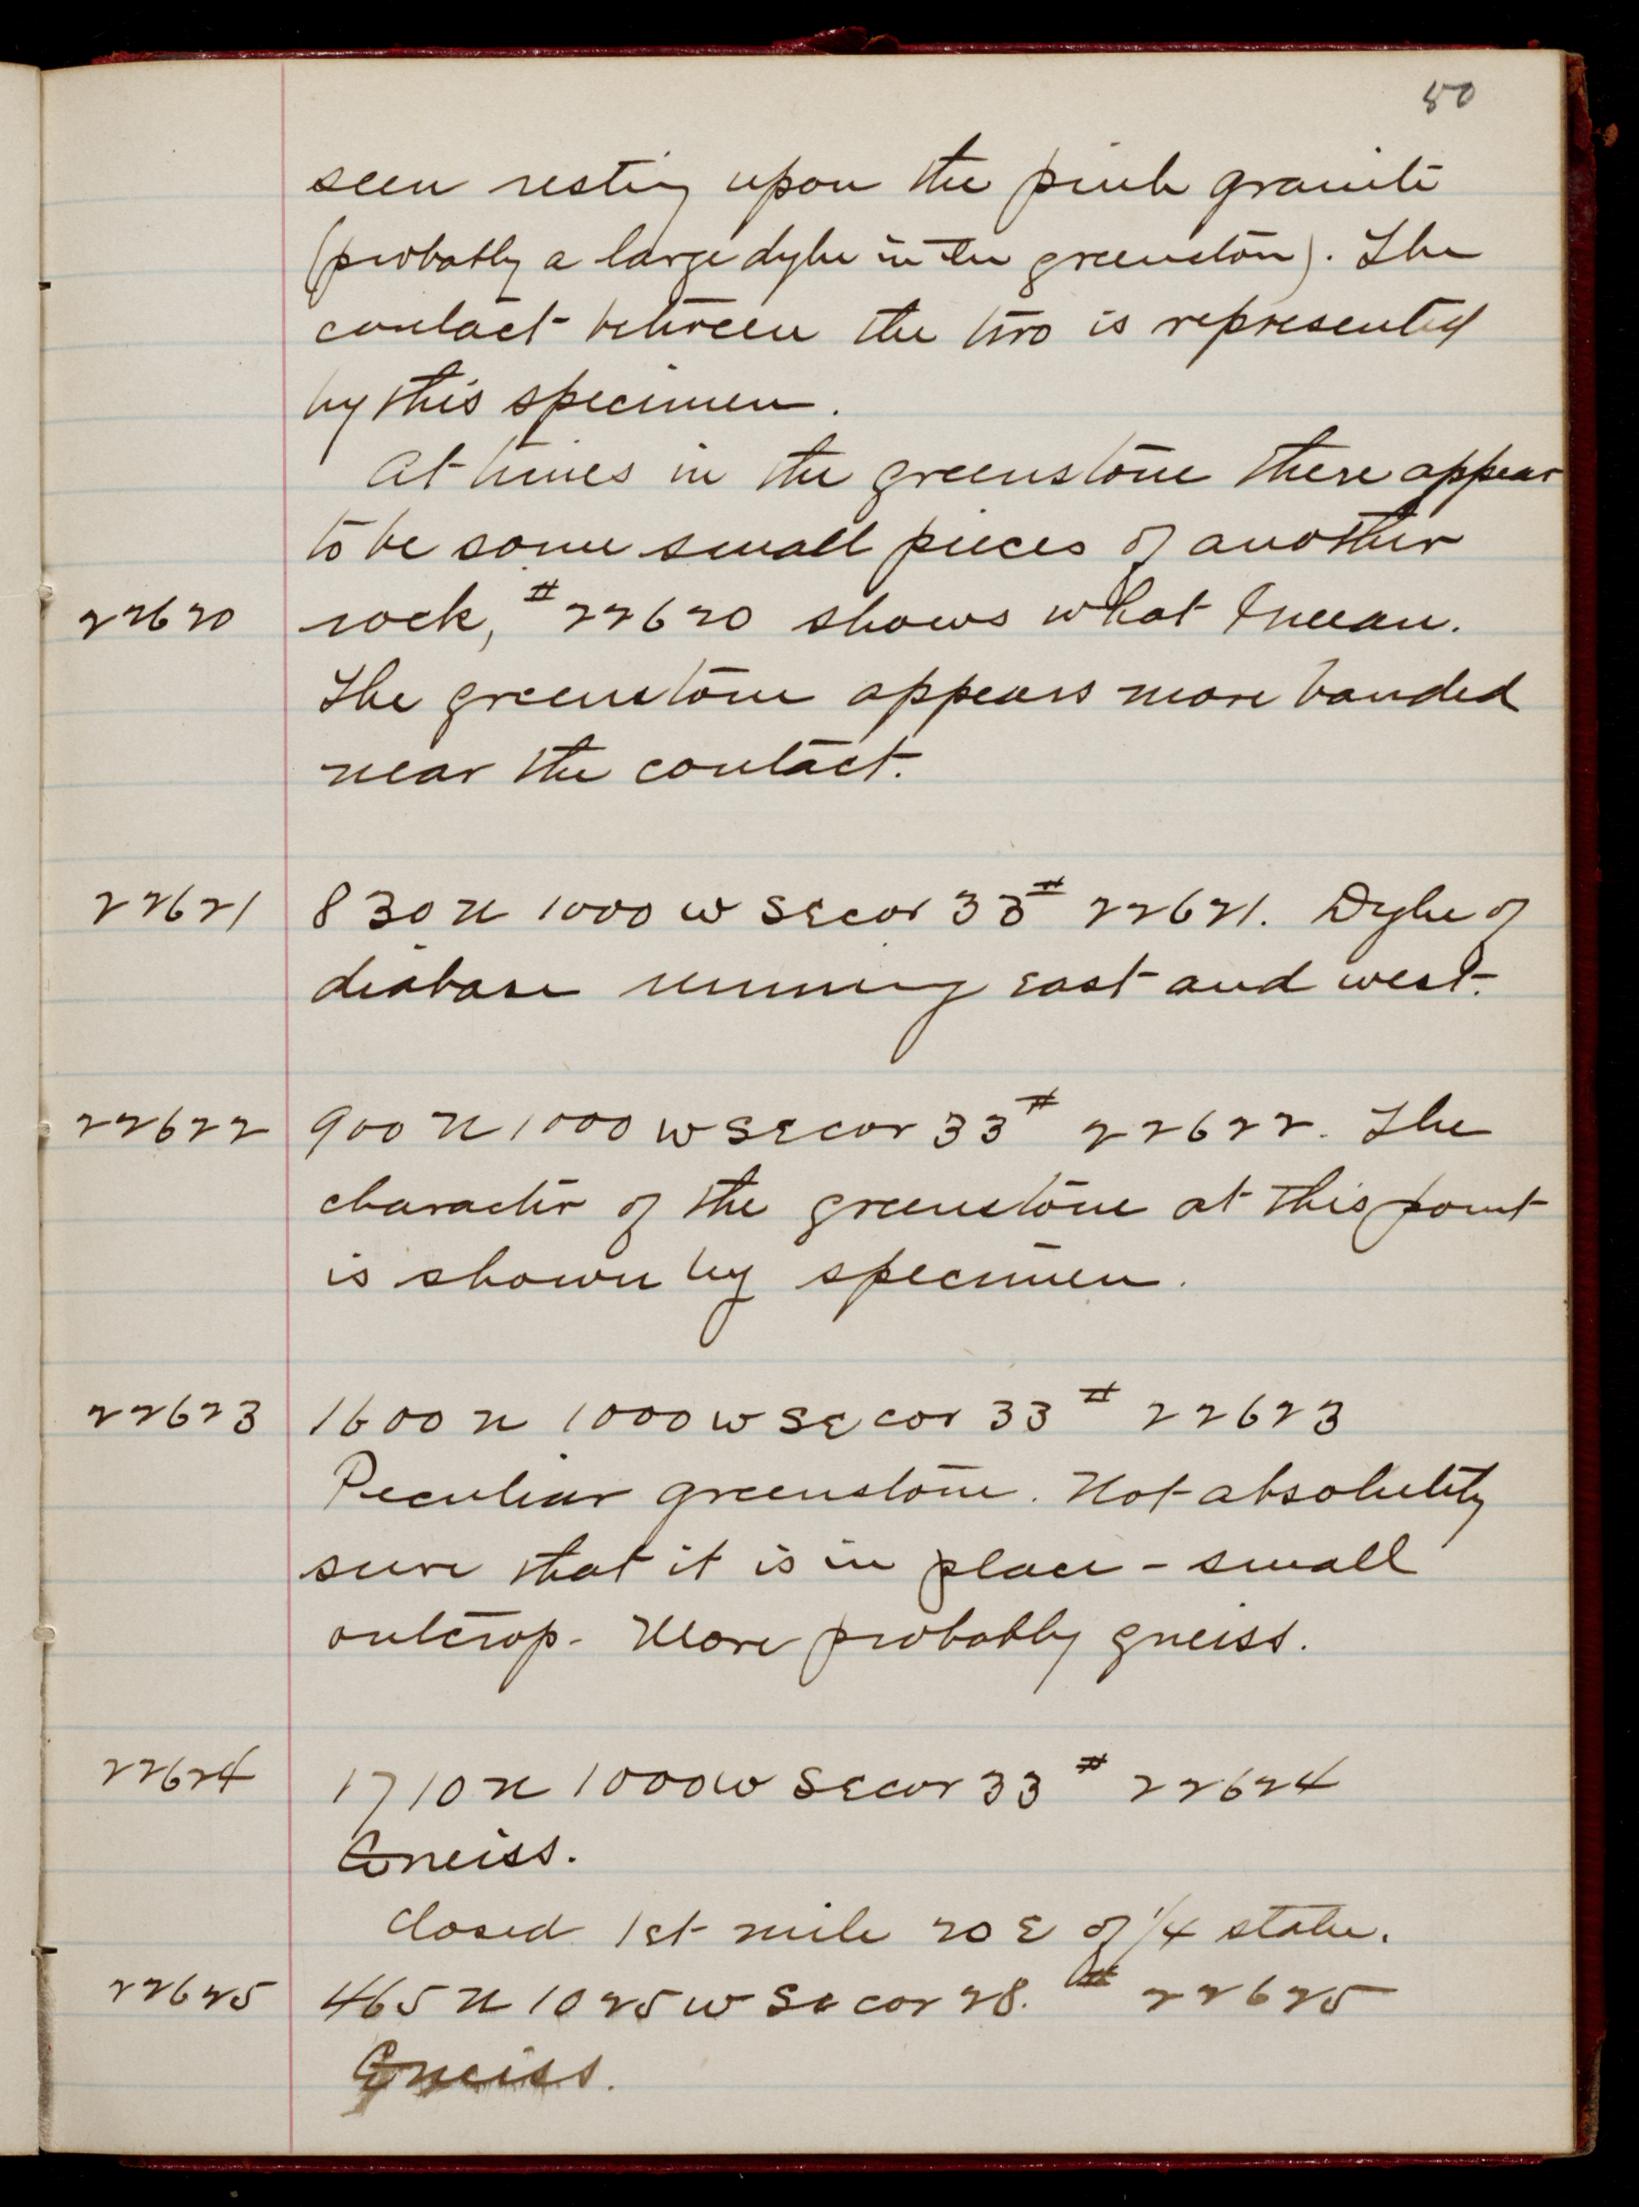 50
seen resting upon the pink granite
(probably a large dyke in the greenstone). The
contact between the two is represented
by this specimen.
At times in the greenstone there appear
to be some small pieces of another
22620 rock, #22620 shows what I mean.
The greenstone appears more banded
near the contact.
22621 830 N 1000 W SE cor 33 # 22621. Dyke of
diabase running east and west.
22622 900 N 1000 W SE cor 33 # 22622. The
character of the greenstone at this point
is shown by specimen.
22623 1600 N 1000 W SE cor 33 # 22623
Peculiar greenstone. Not absolutely
sure that it is in place - small
outcrop - More probably gneiss.
22624 1710 N 1000 W SE cor 33 # 22624
Gneiss.
Closed 1st mile 20 E of 1/4 stake.
22625 465 N 1025 W SE cor 28. # 22625
Gneiss.